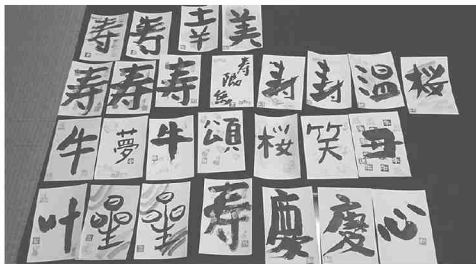 寿 寿 美
寿 寿 寿 寿限無 寿 寿 温 桜
牛 夢 牛 頌 桜 笑 丑
叶 星 星 寿 慶 慶 心